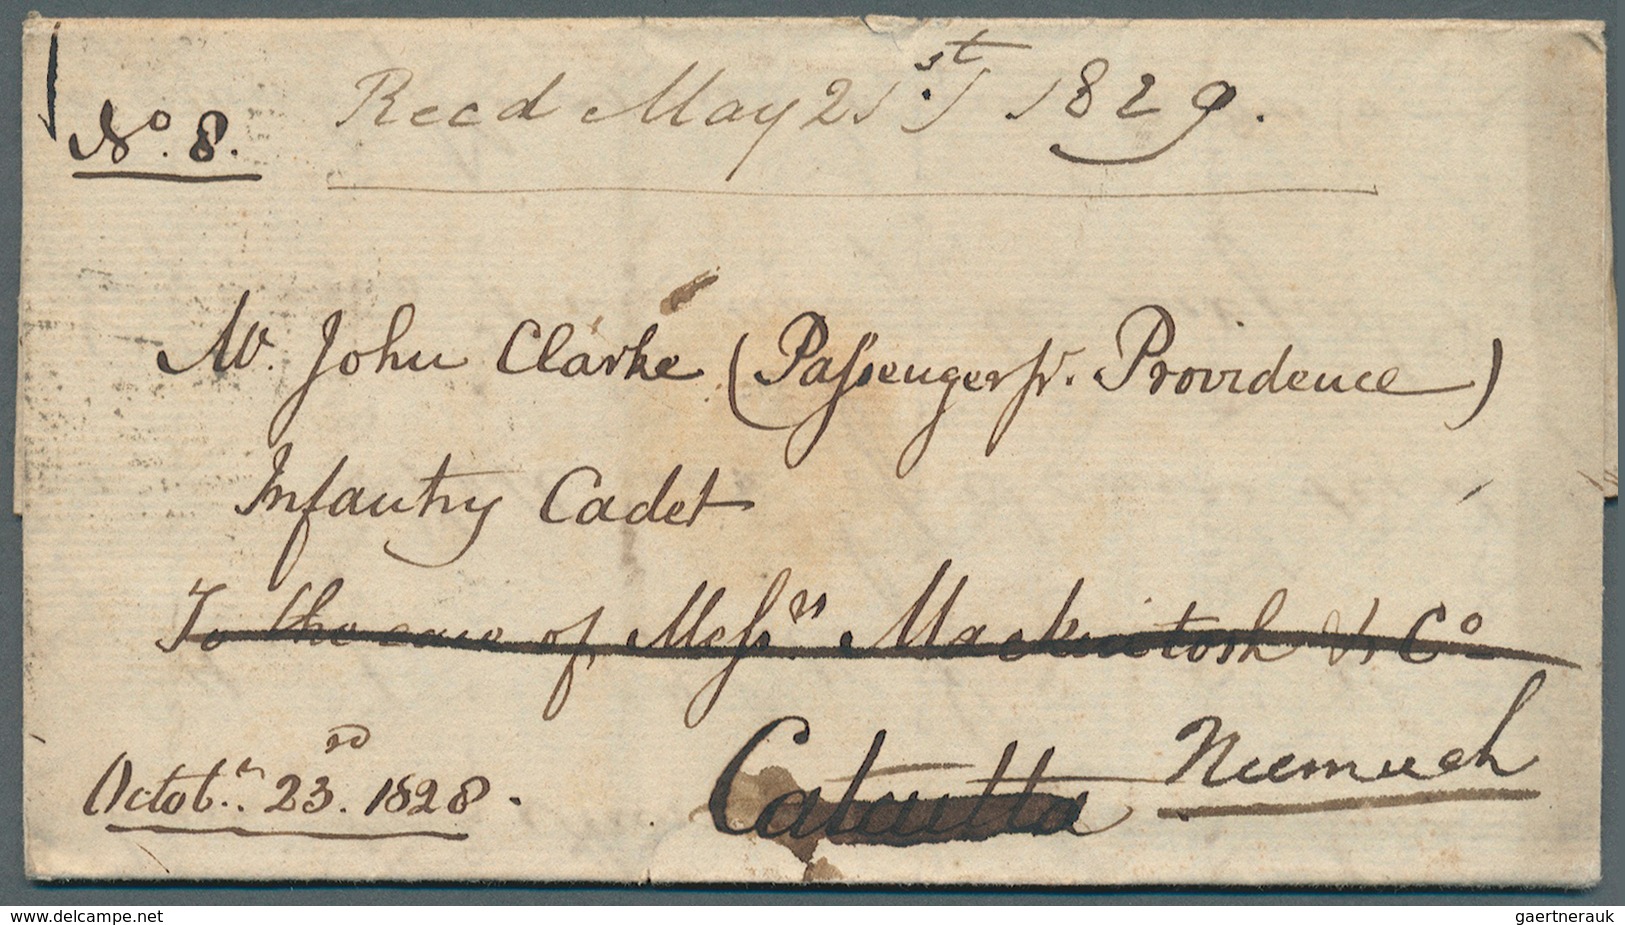 Recd May 21st 1829.
No. 8.
Mr. John Clarke (Passenger pr. Providence)
Infantry Cadet
To the care of Messrs Mackintosh & Co
Calcutta Neemuch
Octobr. 23rd. 1828.
www.delcampe.net
gaertnerauk